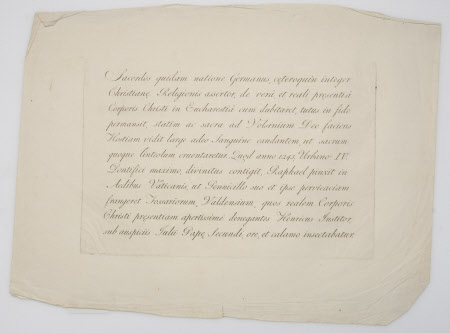 Sacerdos quidam natione Germanus, ceteroquin integer
Christianę Religionis assertor, de verâ et reale presentiâ
Corporis Christi in Eucharestiâ cum dubitaret, tutus in fide
permansit, statim ac sacra ad Volsinium Deo faciens
Hostiam vidit largo adeo Sanguine exudantem, ut sacrum
quoque linteolum cruentaretur. Quod anno 1243. Urbano IV.
Pontifice maximo, divinitus contigit, Raphael pinxit in
Aedibus Vaticanis, ut Penicillo suo et ipse pervicaciam
frangeret Valdensium, quos realem Corporis
Christi presentiam apertissimè denegantes Henricus Institor,
sub auspiciis Julii Papę Secundi, ore, et calamo insectabatur.